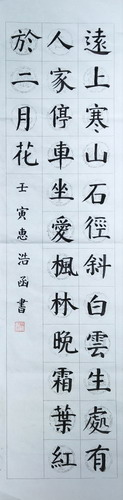 遠上寒山石徑斜白雲生處有
人家停車坐愛楓林晚霜葉紅
於二月花
壬寅惠浩函書